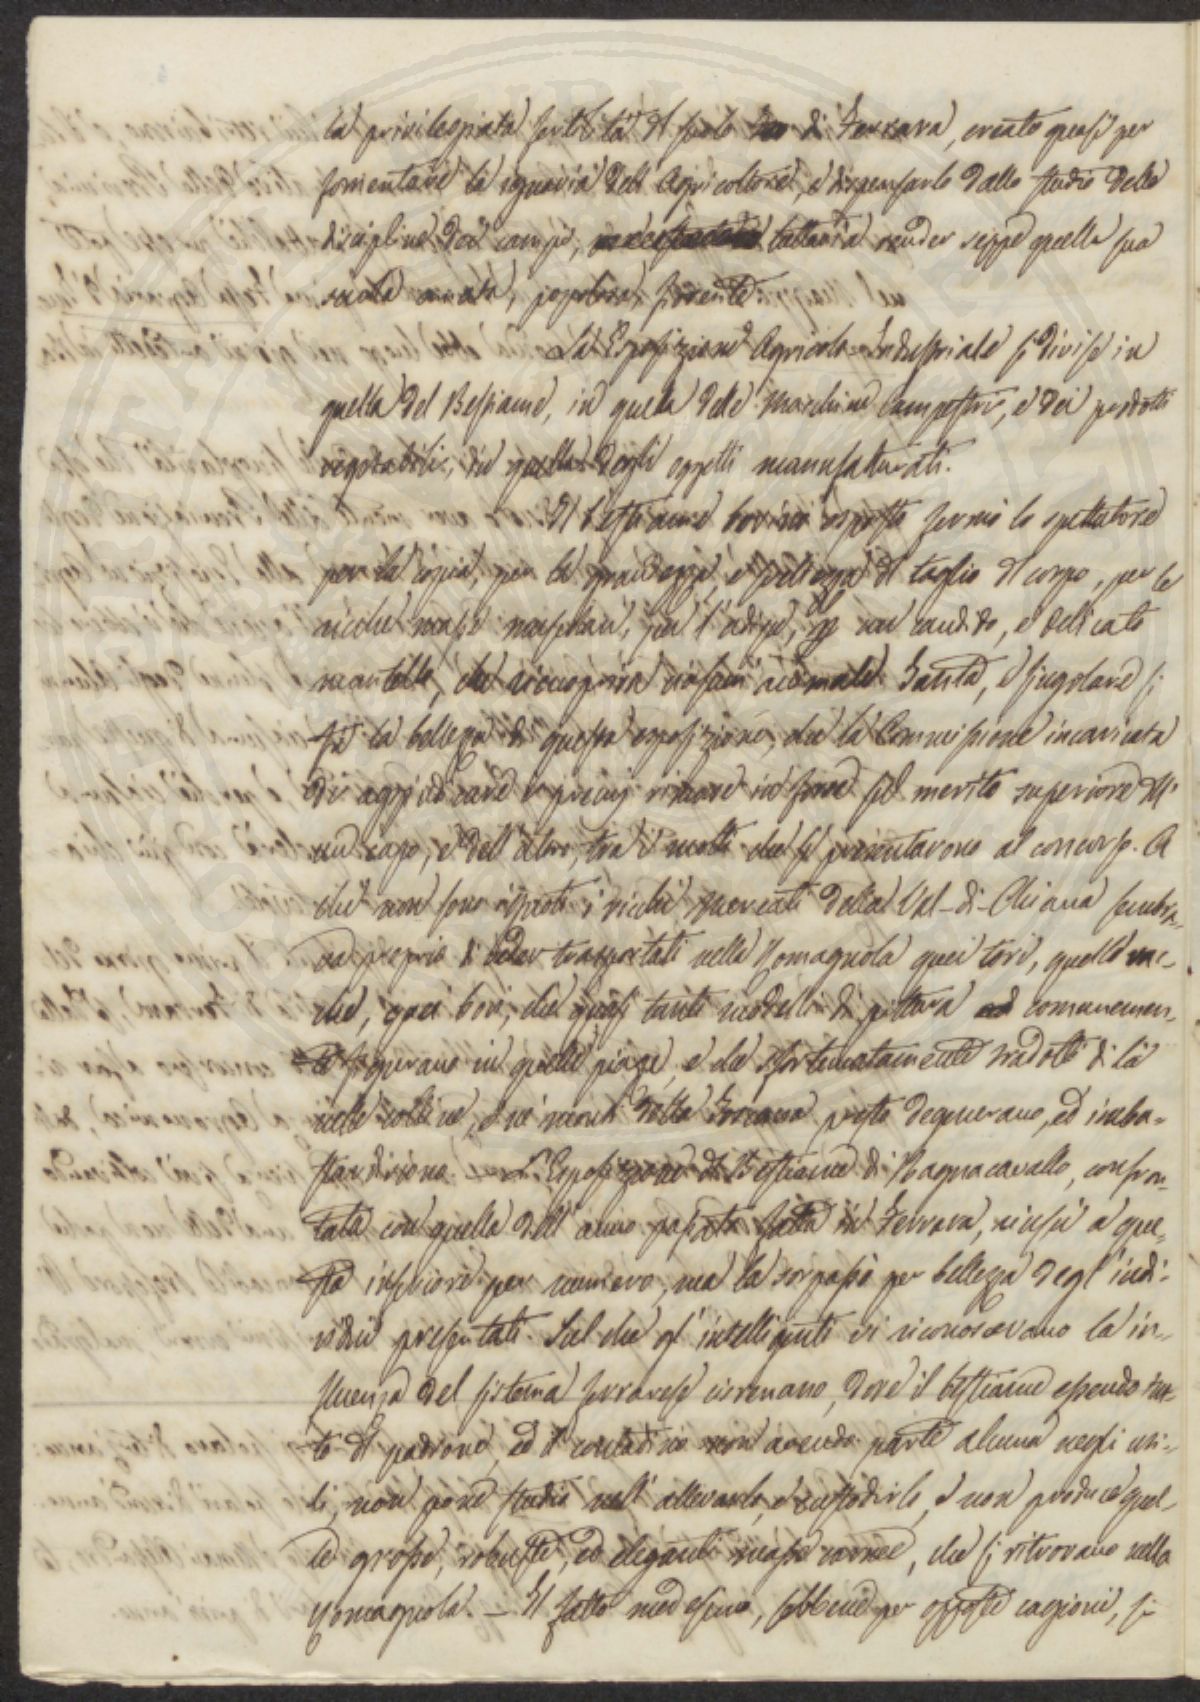 la privilegiata fertilità del suolo di Ferrara, creato quasi per
fomentare la ignavia dell'Agricoltore, e dispensarlo dallo studio delle
discipline dei campi, tuttavia render seppe quella sua
scuola amata, popolosa, fiorente.
La Esposizione Agricola-Industriale si divise in
quella del Bestiame, in quella delle Macchine Campestri, e dei prodotti
vegetabili, in quella degli oggetti manufatturati.
Il bestiame bovino esposto fermò lo spettatore
per la copia, per la grandezza, e sveltezza del taglio del corpo, per le
ricche masse muscolari, per l'adipe, con candido, e delicato
mantello, che ricopriva animale. Tanta, e singolare si
fu la bellezza di questa esposizione, che la Commissione incaricata
di aggiudicare i premj rimase in forse sul merito superiore dell'
un capo, e dell'altro, tra i molti che si presentavono al concorso. A
chi non sono ignoti i ricchi mercati della Val-di-Chiana sembra-
va proprio di veder trasportati nella Romagnola quei tori, quelle vac-
che, quei bovi, che quasi tanti modelli di pittura comunemen-
te figurano in quelle piazze, e che sfortunatamente tradotti di là
nelle colline, e ne' monti della Toscana presto degenerano, ed imba-
stardiscono. - L'Esposizione di Bestiame di Bagnacavallo, confron-
tata con quella dell'anno passato fatta in Ferrara, riuscì a que-
sta inferiore per numero, ma la sorpassò per bellezza degl'indi-
vidui presentati. Sul che gl'intelligenti vi riconoscevano la in-
fluenza del sistema ferrarese cisrenano, dove il bestiame essendo tut-
to del padrone, ed il contadino non avendo parte alcuna negli uti-
li, non pone studio nell'allevarlo, e custodirlo, e non produce quel-
le grosse, robuste, ed eleganti masse carnee, che si ritrovano nella
Romagnola. - Il fatto medesimo, sebbene per opposte cagioni, si